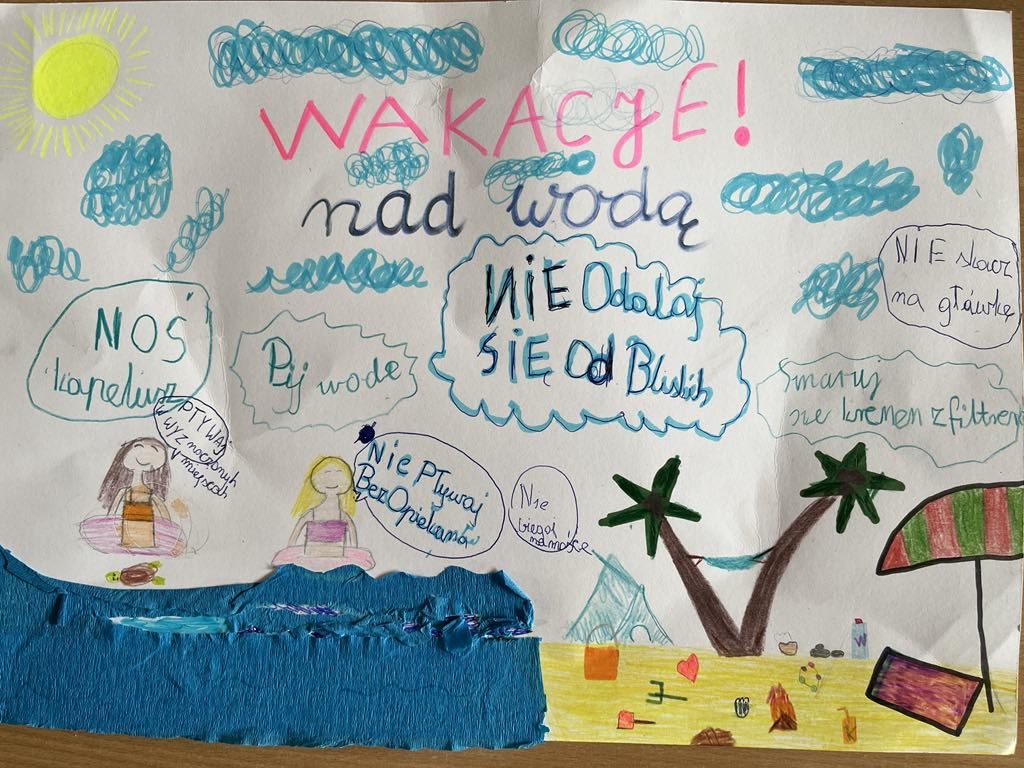 WAKACJE!
nad wodą
NIE skacz
na główkę
NIE Oddalaj
SIĘ Od Bliskich
NOŚ
kapelusz
Pij wodę
Smaruj
się kremem z filtrem
PŁYWAJ
W WYZnaczonych
miejscach
Nie Pływaj
Bez Opiekuna
Nie
biegaj
na
W
K